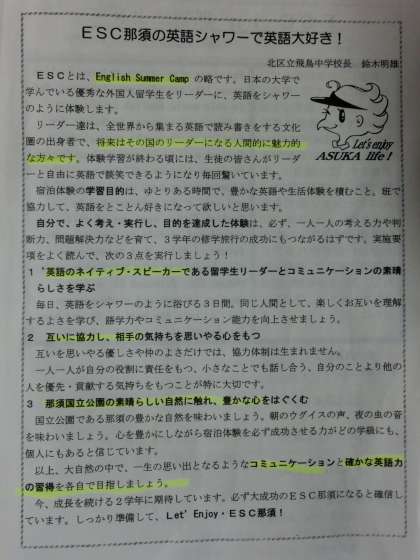 ESC那須の英語シャワーで英語大好き！
北区立飛鳥中学校長　鈴木明雄
ESCとは、English Summer Camp の略です。日本の大学で
学んでいる優秀な外国人留学生をリーダーに、英語をシャワー
のように体験します。
リーダー達は、全世界から集まる英語で読み書きをする文化
圏の出身者で、将来はその国のリーダーになる人間的に魅力的
な方々です。体験学習が終わる頃には、生徒の皆さんがリーダ
ーと自由に英語で談笑できるようになり毎回驚いています。
Let's enjoy
ASUKA life!
宿泊体験の学習目的は、ゆとりある時間で、豊かな英語や生活体験を積むこと。班で
協力して、英語をとことん好きになって欲しいと思います。
自分で、よく考え・実行し、目的を達成した体験は、必ず、一人一人の考える力や判
断力、問題解決力などを育て、3学年の修学旅行の成功にもつながるはずです。実施要
項をよく読んで、次の3点を実行しましょう！
1　英語のネイティブ・スピーカーである留学生リーダーとコミュニケーションの素晴
らしさを学ぶ
毎日、英語をシャワーのように浴びる3日間。同じ人間として、楽しくお互いを理解
するよさを学び、語学力やコミュニケーション能力を向上させましょう。
2　互いに協力し、相手の気持ちを思いやる心をもつ
互いを思いやる優しさや仲のよさだけでは、協力体制は生まれません。
一人一人が自分の役割に責任をもつ、小さなことでも話し合う、自分のことより他の
人を優先・貢献する気持ちをもつことが特に大切です。
3　那須国立公園の素晴らしい自然に触れ、豊かな心をはぐくむ
国立公園である那須の豊かな自然を味わいましょう。朝のウグイスの声、夜の虫の音
を味わいましょう。心を豊かにしながら宿泊体験を必ず成功させる力がどの学級にも、
個人にもあると信じています。
以上、大自然の中で、一生の思い出となるようなコミュニケーションと確かな英語力
の習得を各自で目指しましょう。
今、成長を続ける2学年に期待しています。必ず大成功のESC那須になると確信し
ています。しっかり準備して、Let' Enjoy・ESC那須！